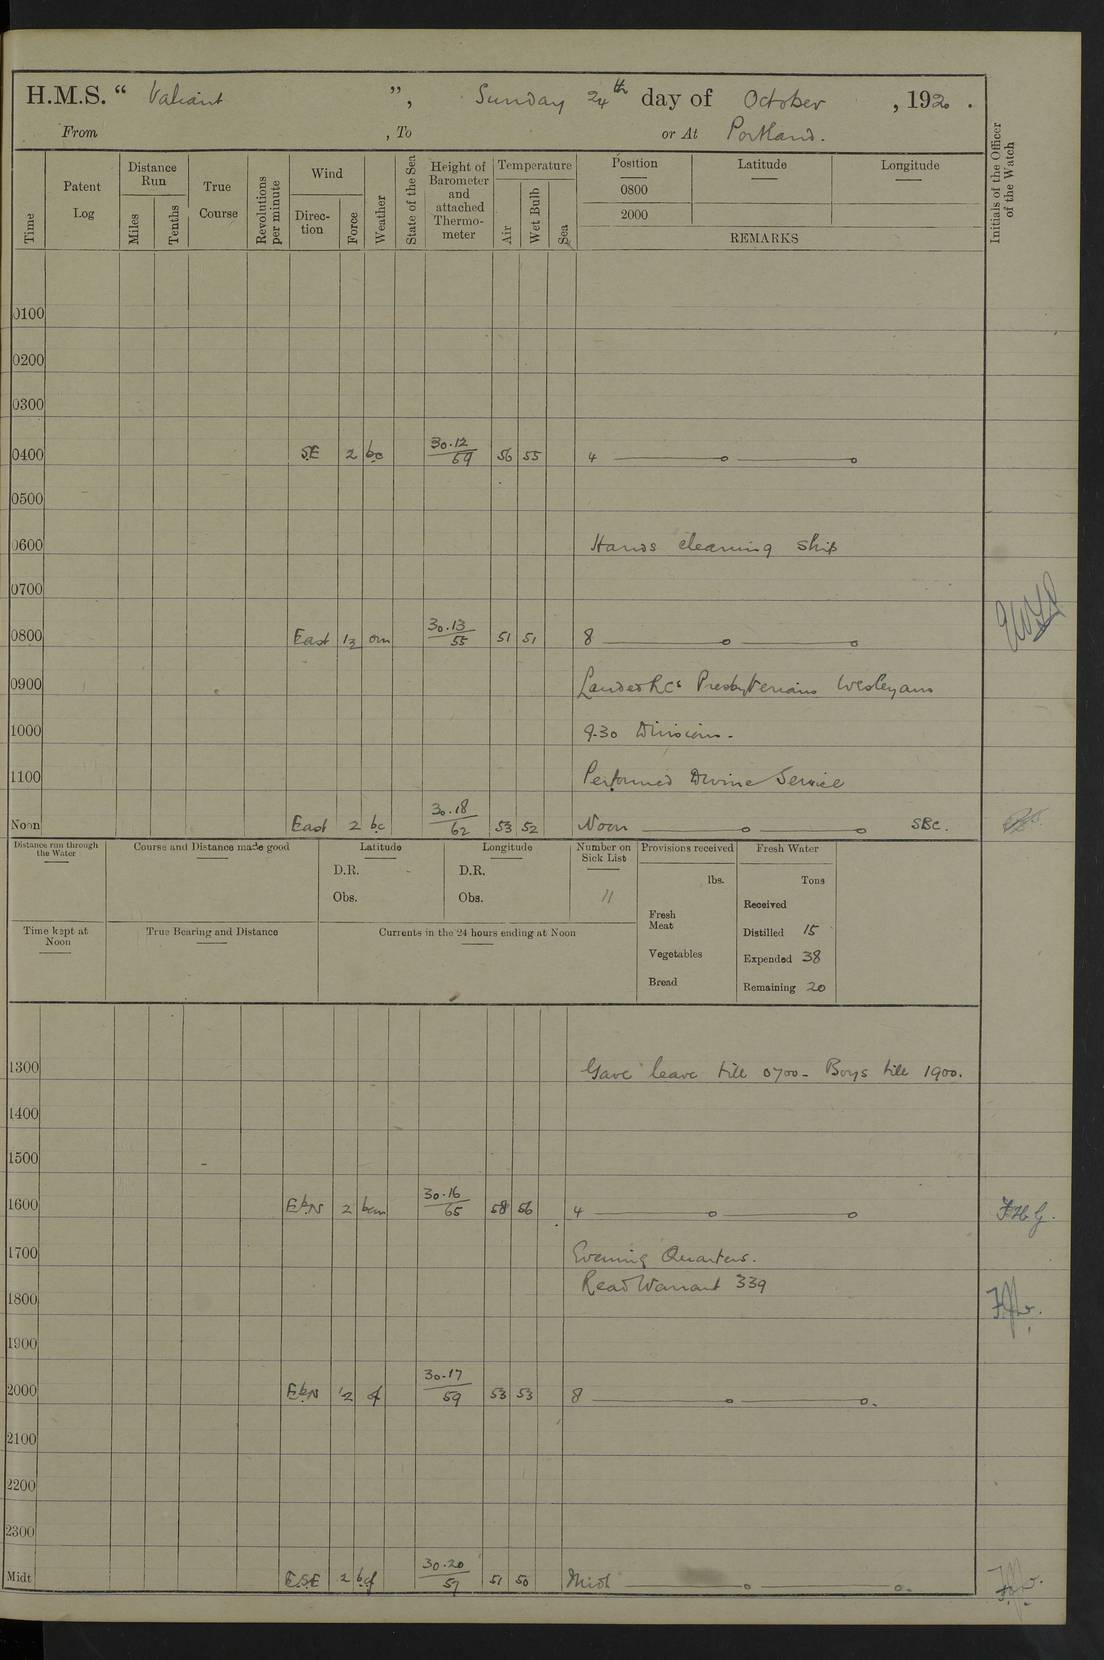 H.M.S. “ Valiant ”, Sunday 24th day of October , 1920 .
From , To or At Portland.
Time Patent Log Distance Run Miles Tenths True Course Revolutions per minute Wind Direc-tion Force Weather State of the Sea Height of Barometer and attached Thermo-meter Temperature Air Wet Bulb Sea Position Latitude Longitude Initials of the Officer of the Watch
0800
2000
REMARKS
0100
0200
0300
0400 SE 2 bc 30.12/59 56 55 4
0500
0600 Hands cleaning ship
0700
0800 East 1/2 om 30.13/55 51 51 8
0900 Landed RCs Presbyterians Wesleyans
1000 9.30 Divisions.
1100 Performed Divine Service
Noon East 2 bc 30.18/62 53 52 Noon SBC.
Distance run through the Water Course and Distance made good Latitude Longitude Number on Sick List Provisions received Fresh Water
D.R. D.R. lbs. Tons
Obs. Obs. 11 Received
Fresh Meat Distilled 15
Time kept at Noon True Bearing and Distance Currents in the 24 hours ending at Noon
Vegetables Expended 38
Bread Remaining 20
1300 Gave leave till 0700 - Boys till 1900.
1400
1500
1600 EbN 2 bcm 30.16/65 58 56 4
1700 Evening Quarters.
Read Warrant 339
1800
1900
2000 EbN 1/2 of 30.17/59 53 53 8
2100
2200
2300
Midt ESE 2 bcf 30.20/57 51 50 Midt